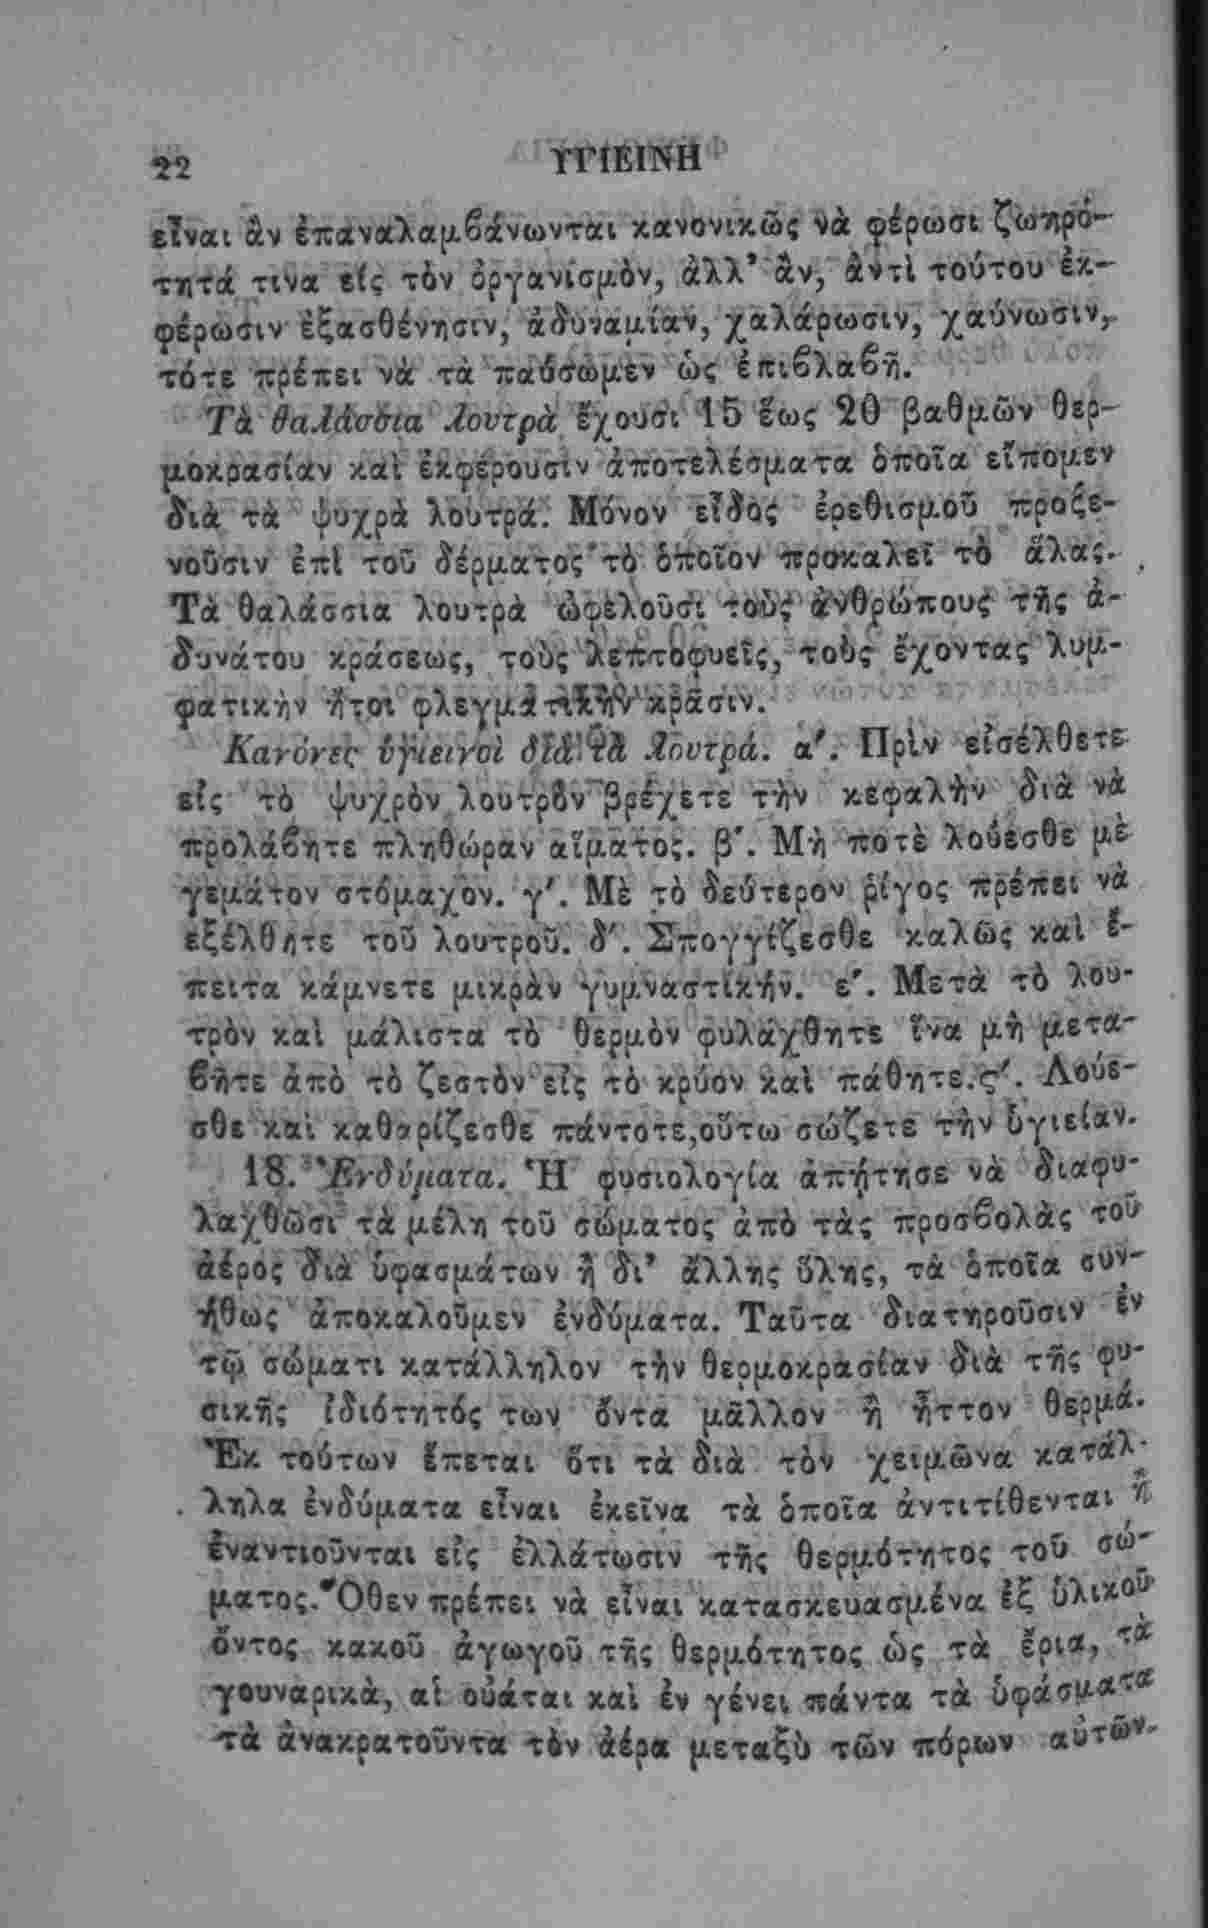 22 ΥΓΙΕΙΝΗ
εἶναι ἂν ἐπαναλαμβάνωνται κανονικῶς νὰ φέρωσι ζωηρό-
τητά τινα εἰς τὸν ὀργανισμὸν, ἀλλ' ἂν, ἀντὶ τούτου ἐκ-
φέρωσιν ἐξασθένησιν, ἀδυναμίαν, χαλάρωσιν, χαύνωσιν,
τότε πρέπει νὰ τὰ παύσωμεν ὡς ἐπιβλαβῆ.
Τὰ θαλάσσια λουτρὰ ἔχουσι 15 ἕως 20 βαθμῶν θερ-
μοκρασίαν καὶ ἐκφέρουσιν ἀποτελέσματα ὁποῖα εἴπομεν
διὰ τὰ ψυχρὰ λουτρά. Μόνον εἶδος ἐρεθισμοῦ προξε-
νοῦσιν ἐπὶ τοῦ δέρματος τὸ ὁποῖον προκαλεῖ τὸ ἅλας.
Τὰ θαλάσσια λουτρὰ ὠφελοῦσι τοὺς ἀνθρώπους τῆς ἀ-
δυνάτου κράσεως, τοὺς λεπτοφυεῖς, τοὺς ἔχοντας λυμ-
φατικὴν ἤτοι φλεγματικὴν κρᾶσιν.
Κανόνες ὑγιεινοὶ διὰ τὰ λουτρά. α'. Πρὶν εἰσέλθετε
εἰς τὸ ψυχρὸν λουτρὸν βρέχετε τὴν κεφαλὴν διὰ νὰ
προλάβητε πληθώραν αἵματος. β'. Μὴ ποτὲ λούεσθε μὲ
γεμάτον στόμαχον. γ'. Μὲ τὸ δεύτερον ῥίγος πρέπει νὰ
ἐξέλθητε τοῦ λουτροῦ. δ'. Σπογγίζεσθε καλῶς καὶ ἔ-
πειτα κάμνετε μικρὰν γυμναστικήν. ε'. Μετὰ τὸ λου-
τρὸν καὶ μάλιστα τὸ θερμὸν φυλάχθητε ἵνα μὴ μετα-
βῆτε ἀπὸ τὸ ζεστὸν εἰς τὸ κρύον καὶ πάθητε. ς'. Λούε-
σθε καὶ καθαρίζεσθε πάντοτε, οὕτω σώζετε τὴν ὑγιείαν.
18. Ἐνδύματα. Ἡ φυσιολογία ἀπῄτησε νὰ διαφυ-
λαχθῶσι τὰ μέλη τοῦ σώματος ἀπὸ τὰς προσβολὰς τοῦ
ἀέρος διὰ ὑφασμάτων ἢ δι' ἄλλης ὕλης, τὰ ὁποῖα συν-
ήθως ἀποκαλοῦμεν ἐνδύματα. Ταῦτα διατηροῦσιν ἐν
τῷ σώματι κατάλληλον τὴν θερμοκρασίαν διὰ τῆς φυ-
σικῆς ἰδιότητός των ὄντα μᾶλλον ἢ ἧττον θερμά.
Ἐκ τούτων ἕπεται ὅτι τὰ διὰ τὸν χειμῶνα κατάλ-
ληλα ἐνδύματα εἶναι ἐκεῖνα τὰ ὁποῖα ἀντιτίθενται ἢ
ἐναντιοῦνται εἰς ἐλλάτωσιν τῆς θερμότητος τοῦ σώ-
ματος. Ὅθεν πρέπει νὰ εἶναι κατασκευασμένα ἐξ ὑλικοῦ
ὄντος κακοῦ ἀγωγοῦ τῆς θερμότητος ὡς τὰ ἔρια, τὰ
γουναρικὰ, αἱ οὐάται καὶ ἐν γένει πάντα τὰ ὑφάσματα
τὰ ἀνακρατοῦντα τὸν ἀέρα μεταξὺ τῶν πόρων αὐτῶν.